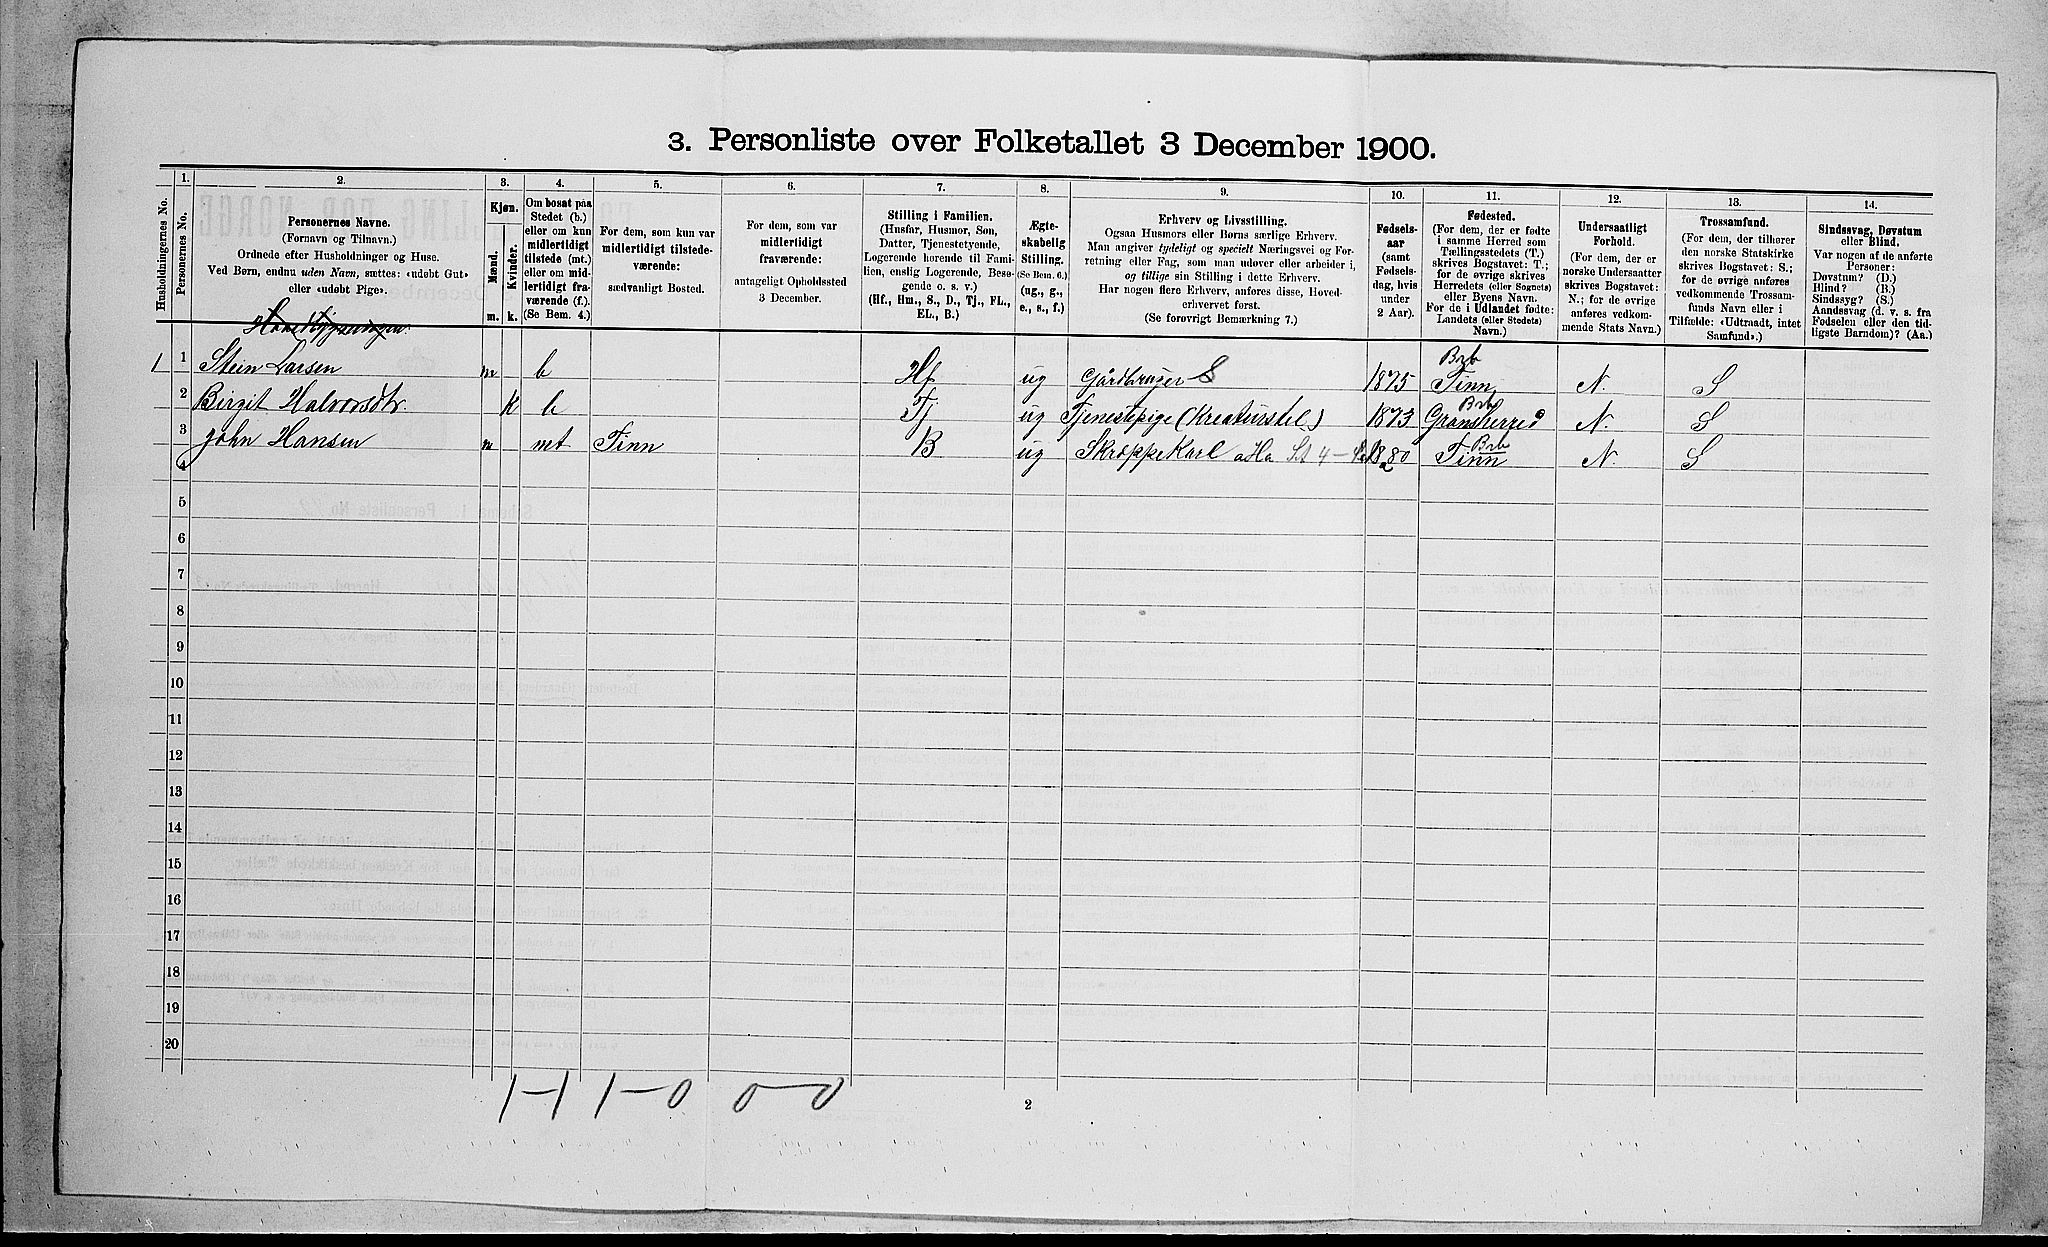 3. Personliste over Folketallet 3 December 1900.
1. 2. 3. 4. 5. 6. 7. 8. 9. 10. 11. 12. 13. 14.
Husholdningernes No.
Personernes No.
Personernes Navne.
(Fornavn og Tilnavn.)
Ordnede efter Husholdninger og Huse.
Ved Børn, endnu uden Navn, sættes: «udøbt Gut»
eller «udøbt Pige».
Kjøn.
Mænd.
Kvinder.
m. k.
Om bosat paa
Stedet (b.)
eller om kun
midlertidigt
tilstede (mt.)
eller om mid-
lertidigt fra-
værende (f.).
(Se Bem. 4.)
For dem, som kun var
midlertidigt tilstede-
værende:
sædvanligt Bosted.
For dem, som var
midlertidigt
fraværende:
antageligt Opholdssted
3 December.
Stilling i Familien.
(Husfar, Husmor, Søn,
Datter, Tjenestetyende,
Logerende hørende til Fami-
lien, enslig Logerende, Besø-
gende o. s. v.)
(Hf., Hm., S., D., Tj., FL.,
EL., B.)
Ægte-
skabelig
Stilling.
(Se Bem. 6.)
(ug., g.,
e., s., f.)
Erhverv og Livsstilling.
Ogsaa Husmors eller Børns særlige Erhverv.
Man angiver tydeligt og specielt Næringsvei og For-
retning eller Fag, som man udover eller arbeider i,
og tillige sin Stilling i dette Erhverv.
Har nogen flere Erhverv, anføres disse, Hoved-
erhvervet først.
(Se forøvrigt Bemærkning 7.)
Fødsels-
aar
(samt
Fødsels-
dag, hvis
under
2 Aar).
Fødested.
(For dem, der er fødte
i samme Herred som
Tællingsstedets (T.)
skrives Bogstavet: T.;
for de øvrige skrives
Herredets (eller Sognets)
eller Byens Navn.
For de i Udlandet fødte:
Landets (eller Stedets)
Navn.)
Undersaatligt
Forhold.
(For dem, der er
norske Undersaatter
skrives Bogstavet:
N.; for de øvrige
anføres vedkom-
mende Stats Navn.)
Trossamfund.
(For dem, der tilhører
den norske Statskirke
skrives Bogstavet: S.;
for de øvrige anføres
vedkommende Trossam-
funds Navn eller i
Tilfælde: «Udtraadt, intet
Samfund».)
Sindssvag, Døvstum
eller Blind.
Var nogen af de anførte
Personer:
Døvstum? (D.)
Blind? (B.)
Sindssyg? (S.)
Aandssvag (d. v. s. fra
Fødselen eller den tid-
ligste Barndom)? (Aa.)
1 1 Stein Larsen m b Hf ug Gårdbruger S 1875 Brb Tinn N. S
2 Birgit Halvorsdtr. k b Tj ug Tjenestepige (Kreaturstel) 1873 Brb Gransherred N. S
3 John Hansen m mt Tinn B ug Skræppekarl 1880 Brb Tinn N. S
4
5
6
7
8
9
10
11
12
13
14
15
16
17
18
19
20
1-1 1-0 0-0
2